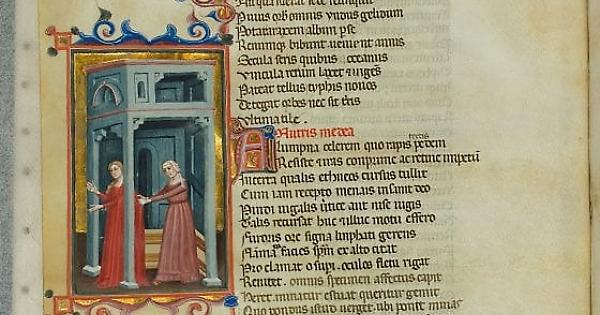 Potat araxem albim pse
Renumque bibunt uenient annis
Secula seris quibus occeanus
Vincula rerum laxet et ingens
Pateat tellus typhis nouos
Detegat orbes nec sit tris
Vltima tile.
Nutrix medea
Alumpna celerem quo rapis tectis pedem
Resiste et iras comprime ac retine impetum
Incerta qualis ethneos cursus tullit
Cum iam recepto menais insanit deo
Pindi niualis uertice aut nise iugis
Talis recursat huc illuc motu effero
Furoris ore signa linphati gerens
flamata facies spm ex alto citat
Proclamat oculos fletu rigat
Renitet. omnis specimen affectus capit
Heret. minatur estuat queritur gemit
Quo pondus istud uerget. ubi ponet minas